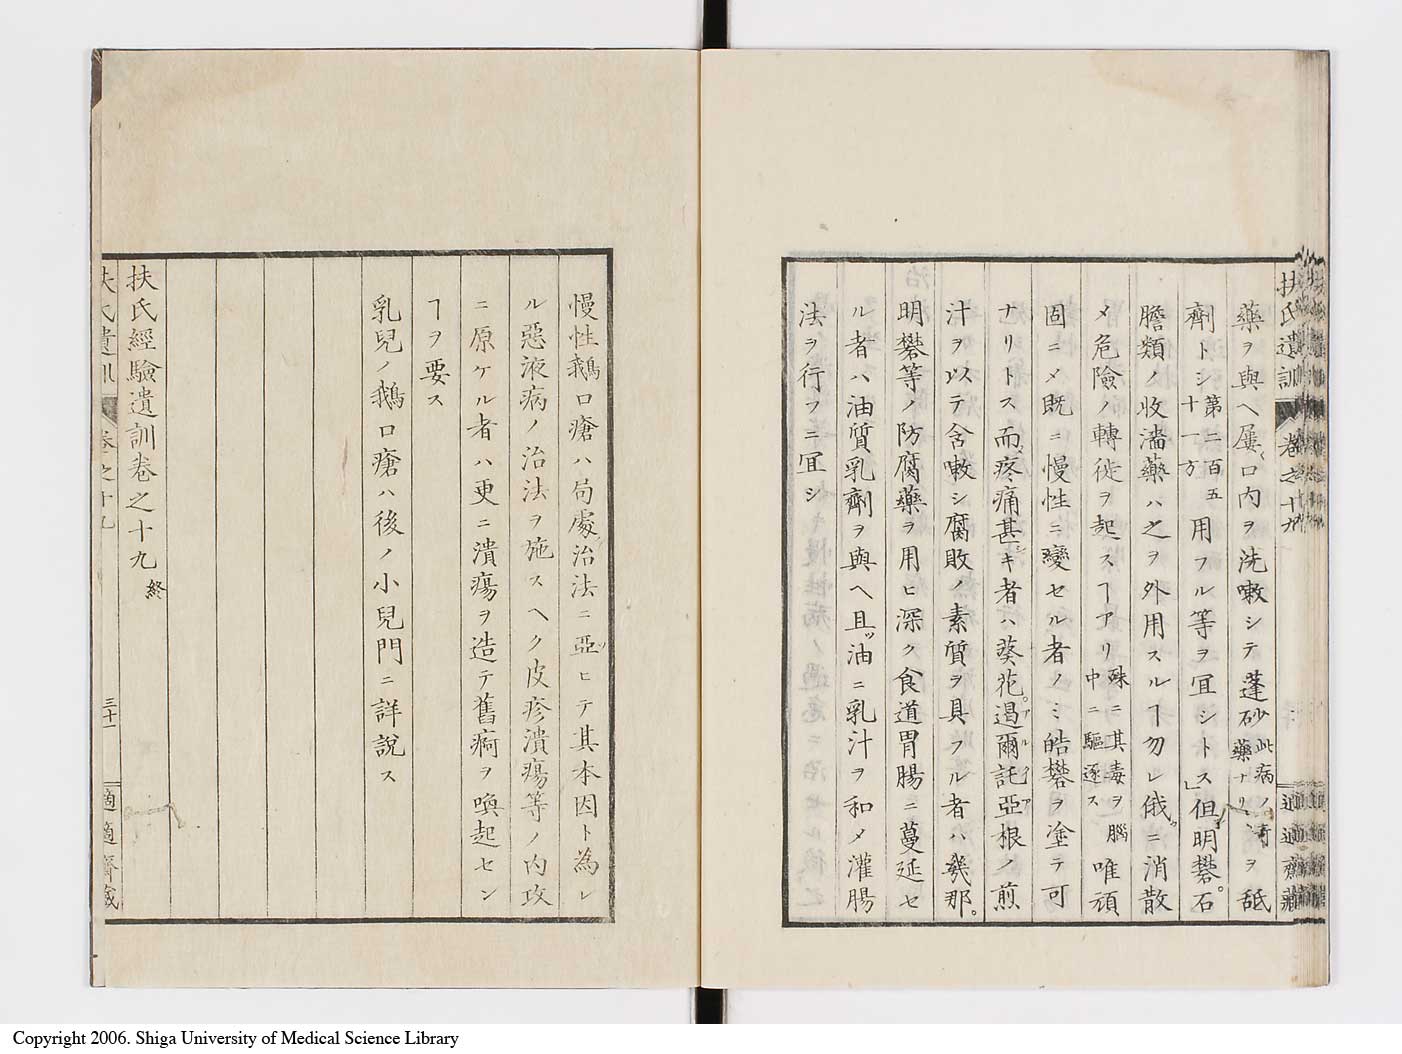 藥ヲ與ヘ屢口内ヲ洗嗽シテ蓬砂此病ノ奇藥ナリヲ舐
劑トシ第二百五十一方用フル等ヲ冝シトス」但明礬石
膽類ノ收濇藥ハ之ヲ外用スルヿ勿レ俄ニ消散
メ危險ノ轉徙ヲ起スヿアリ殊ニ其毒ヲ腦中ニ驅逐ス唯頑
固ニメ既ニ慢性ニ變セル者ノミ皓礬ヲ塗テ可
ナリトス而疼痛甚キ者ハ葵花遏爾託亞根ノ煎
汁ヲ以テ含嗽シ腐敗ノ素質ヲ具フル者ハ幾那
明礬等ノ防腐藥ヲ用ヒ深ク食道胃腸ニ蔓延セ
ル者ハ油質乳劑ヲ與ヘ且ツ油ニ乳汁ヲ和メ灌腸
法ヲ行フニ冝シ
慢性鵝口瘡ハ局處治法ニ亞ヒテ其本因ト為レ
ル惡液病ノ治法ヲ施スヘク皮疹潰瘍等ノ内攻
ニ原ケル者ハ更ニ潰瘍ヲ造テ舊痾ヲ喚起セン
ヿヲ要ス
乳兒ノ鵝口瘡ハ後ノ小兒門ニ詳說ス
扶氏經驗遺訓卷之十九 終
扶氏遺訓 卷之十九 三十一 適適齋藏
扶氏遺訓 卷之十九 適適齋藏
Copyright 2006. Shiga University of Medical Science Library